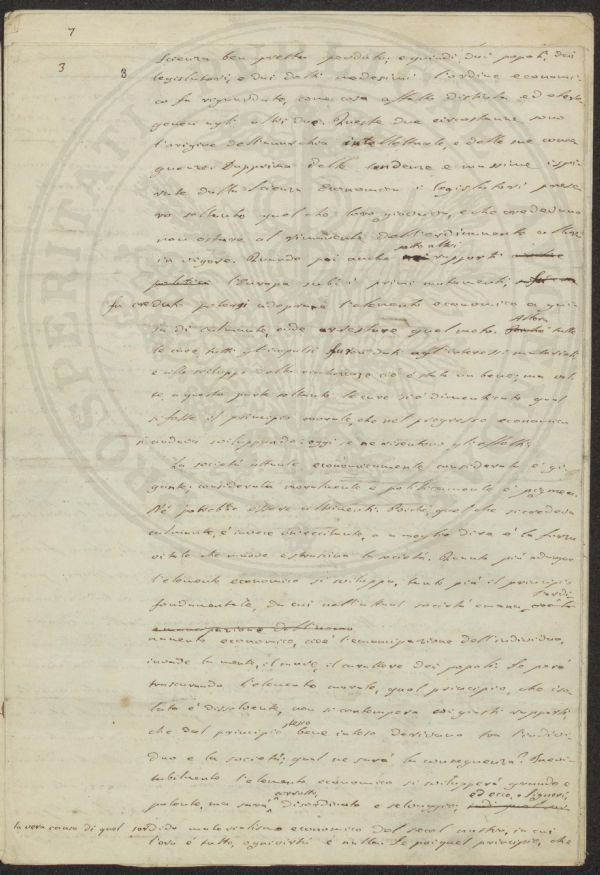 7
3 8
scienza ben presto perduto; e quindi dai popoli, dai
legislatori, e dai dotti medesimi l'ordine economi-
co fu riguardato, come cosa affatto distinta ed etero-
genea agli altri due. Queste due circostanze sono
l'origine dell'anarchia intellettuale, e delle sue conse-
guenze. Dapprima delle tendenze e massime ispi-
rate dalla scienza economica i legislatori prese-
ro soltanto quel che loro giovava, e che credevano
non ostare al rimanente dell'ordinamento allora
in vigore. Quando poi anche
sotto altri
rapporti
politici l'Europa subì i primi mutamenti,
fu creduto potersi adoprare l'elemento economico a gui-
sa di calmante, onde arrestare quel moto.
Allora
tutte
le cure, tutti gl'impulsi furon dati agl'interessi materiali
e allo sviluppo della ricchezza: ciò è stato un bene; ma vol-
te a questa parte soltanto le cure si è dimenticato qual
si fosse il principio morale, che nel progresso economico
si andava sviluppando: oggi se ne risentono gli effetti.
La società attuale economicamente considerata è gi-
gante: considerata moralmente e politicamente è pigmea.
Nè potrebbe essere altrimenti. Poichè, quel che si credeva
calmante, è invece un eccitante, o a meglio dire è la forza
vitale che muove e trascina la società. Quanto più adunque
l'elemento economico si sviluppa, tanto più il principio
fondamentale, da cui nell'attual società emana
l'ordi-
emancipazione dell'uomo
namento economico, cioè l'emancipazione dell'individuo,
invade la mente, il cuore, il carattere dei popoli. Se però
trascurando l'elemento morale, quel principio, che iso-
lato è dissolvente, non si contempera coi giusti rapporti,
che dal principio
stesso
bene inteso derivano tra l'indivi-
duo e la società; qual ne sarà la conseguenza? Inevi-
tabilmente l'elemento economico si svilupperà grande e
potente, ma sarà
corrotto,
disordinato e selvaggio;
ed ecco, o Signori,
la vera causa di quel sordido materialismo economico del secol nostro, in cui
l'oro è tutto, ogni virtù è nulla. Se poi quel principio, che